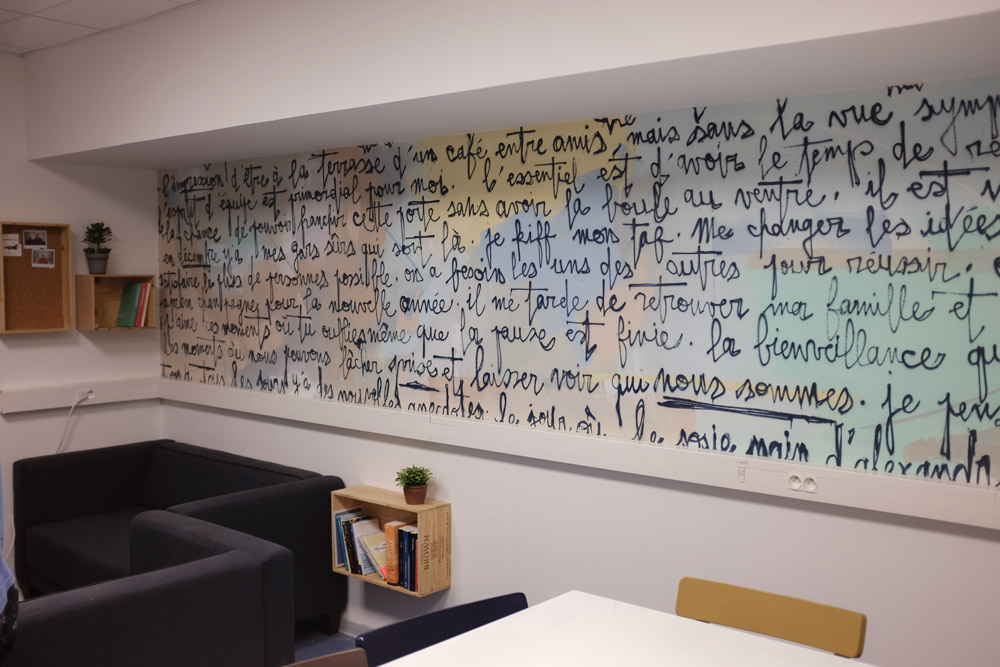 l'impression d'être à la terrasse d'un café entre amis mais sans la vue symp
l'esprit d'équipe est primordial pour moi. l'essentiel est d'avoir le temps de ré
la chance de pouvoir franchir cette porte sans avoir la boule au ventre. il est
en décembre y'a mes gars sûrs qui sont là. je kiff mon taf. Me changer les idées
satisfaire le plus de personnes possible. on a besoin les uns des autres pour réussir.
champagne pour la nouvelle année. il me tarde de retrouver ma famille et
j'aime ces moments où tu oublies même que la pause est finie. la bienveillance qu
les moments où nous pouvons lâcher prise et laisser voir qui nous sommes. je pen
tous les jours y'a des nouvelles anecdotes. le jour où le sosie main d'alexandr
BROWN